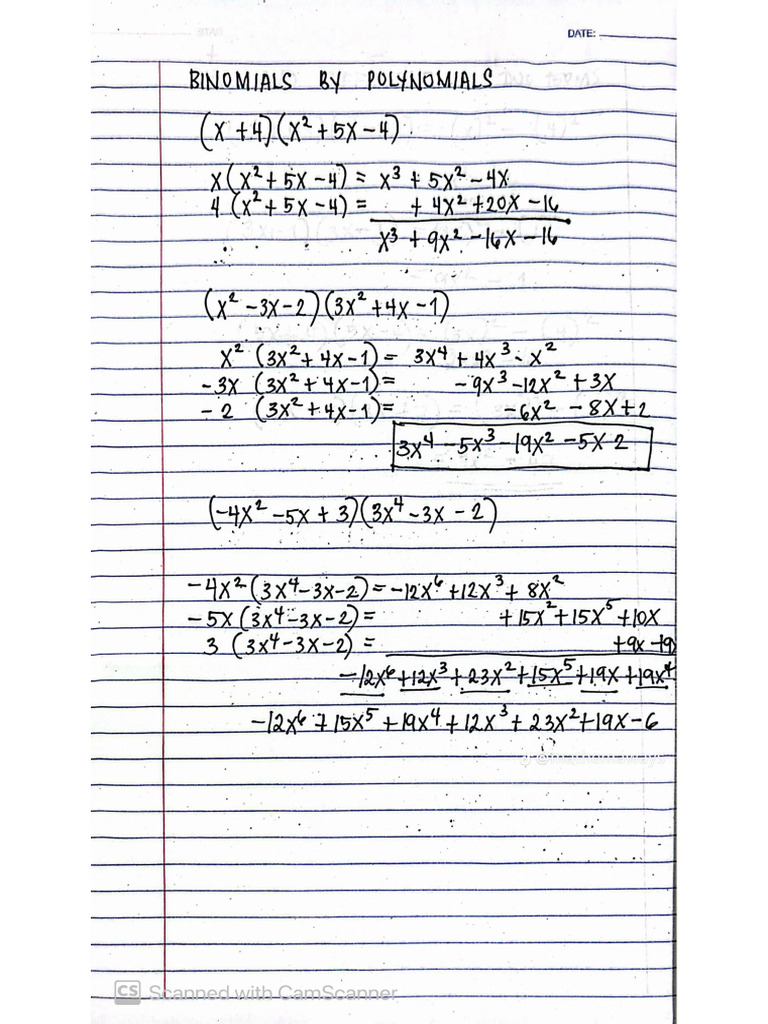 DATE:
BINOMIALS BY POLYNOMIALS
(x + 4)(x² + 5x - 4)
x(x² + 5x - 4) = x³ + 5x² - 4x
4 (x² + 5x - 4) = + 4x² + 20x - 16
x³ + 9x² - 16x - 16
(x² - 3x - 2)(3x² + 4x - 1)
x² (3x² + 4x - 1) = 3x⁴ + 4x³ - x²
- 3x (3x² + 4x - 1) = - 9x³ - 12x² + 3x
- 2 (3x² + 4x - 1) = - 6x² - 8x + 2
3x⁴ - 5x³ - 19x² - 5x 2
(-4x² - 5x + 3)(3x⁴ - 3x - 2)
- 4x² (3x⁴ - 3x - 2) = -12x⁶ + 12x³ + 8x²
- 5x (3x⁴ - 3x - 2) = + 15x² + 15x⁵ + 10x
3 (3x⁴ - 3x - 2) = + 9x + 9
-12x⁶ + 12x³ + 23x² + 15x⁵ + 19x + 19x⁴
-12x⁶ + 15x⁵ + 19x⁴ + 12x³ + 23x² + 19x - 6
CS Scanned with CamScanner